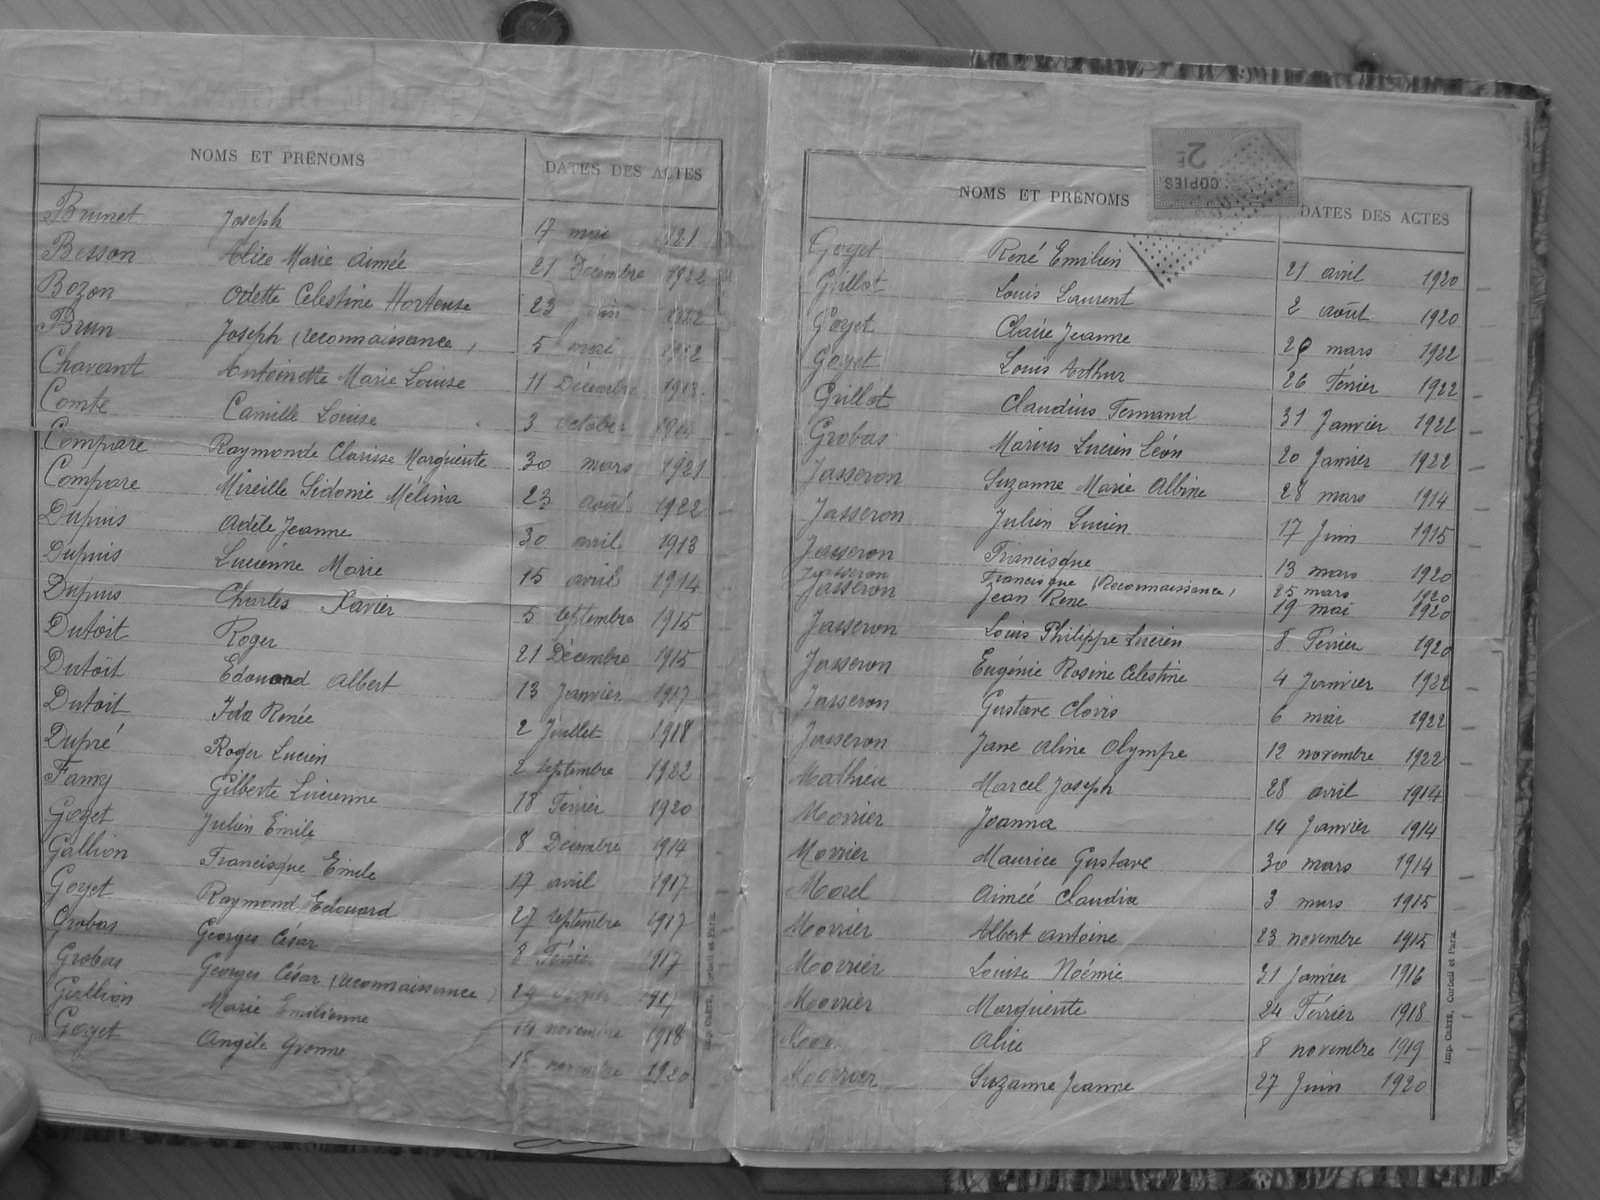 NOMS ET PRÉNOMS DATES DES ACTES
Brunet Joseph 17 mai 1921
Besson Alice Marie Aimée 21 Décembre 1922
Bozon Odette Celestine Hortense 23 1922
Brun Joseph (reconnaissance) 5 mai 1922
Chavant Antoinette Marie Louise 11 Décembre 1913
Comte Camille Louise 3 octobre 1914
Compare Raymonde Clarisse Marguerite 30 mars 1921
Compare Mireille Sidonie Mélina 23 août 1922
Dupuis Adèle Jeanne 30 avril 1913
Dupuis Lucienne Marie 15 avril 1914
Dupuis Charles Xavier 5 Septembre 1915
Dutoit Roger 21 Décembre 1915
Dutoit Edouard Albert 13 Janvier 1917
Dutoit Ida Renée 2 Juillet 1918
Dupré Roger Lucien 2 Septembre 1922
Famy Gilberte Lucienne 18 Février 1920
Goyet Julien Emile 8 Décembre 1914
Gallion Francisque Emile 17 avril 1917
Goyet Raymond Edouard 27 Septembre 1917
Grobas Georges César 3 Février 1917
Grobas Georges César (reconnaissance) 24 1917
Gallion Marie Emilienne 14 novembre 1918
Goyet Angèle Yvonne 18 novembre 1920
Imp. Carte, Corbeil et Paris.
2F
COPIES
NOMS ET PRÉNOMS DATES DES ACTES
Goyet René Emilien 21 avril 1920
Grillot Louis Laurent 2 août 1920
Goyet Claire Jeanne 29 mars 1922
Goyet Louis Arthur 26 Février 1922
Grillot Claudius Fernand 31 Janvier 1922
Grobas Marius Lucien Léon 20 Janvier 1922
Jasseron Suzanne Marie Albine 28 mars 1914
Jasseron Julien Lucien 17 Juin 1915
Jasseron Francisque 13 mars 1920
Jasseron Francisque (Reconnaissance) 25 mars 1920
Jasseron Jean René 19 mai 1920
Jasseron Louis Philippe Lucien 8 Février 1920
Jasseron Eugénie Rosine Celestine 4 Janvier 1922
Jasseron Gustave Clovis 6 mai 1922
Jasseron Jane Aline Olympe 12 novembre 1922
Mathieu Marcel Joseph 28 avril 1914
Morrier Joanna 14 Janvier 1914
Morrier Maurice Gustave 30 mars 1914
Morel Aimée Claudia 3 mars 1915
Morrier Albert Antoine 23 novembre 1915
Morrier Louise Noémie 31 Janvier 1916
Morrier Marguerite 24 Février 1918
Alice 8 novembre 1919
Morrier Suzanne Jeanne 27 Juin 1920
Imp. Carte, Corbeil et Paris.